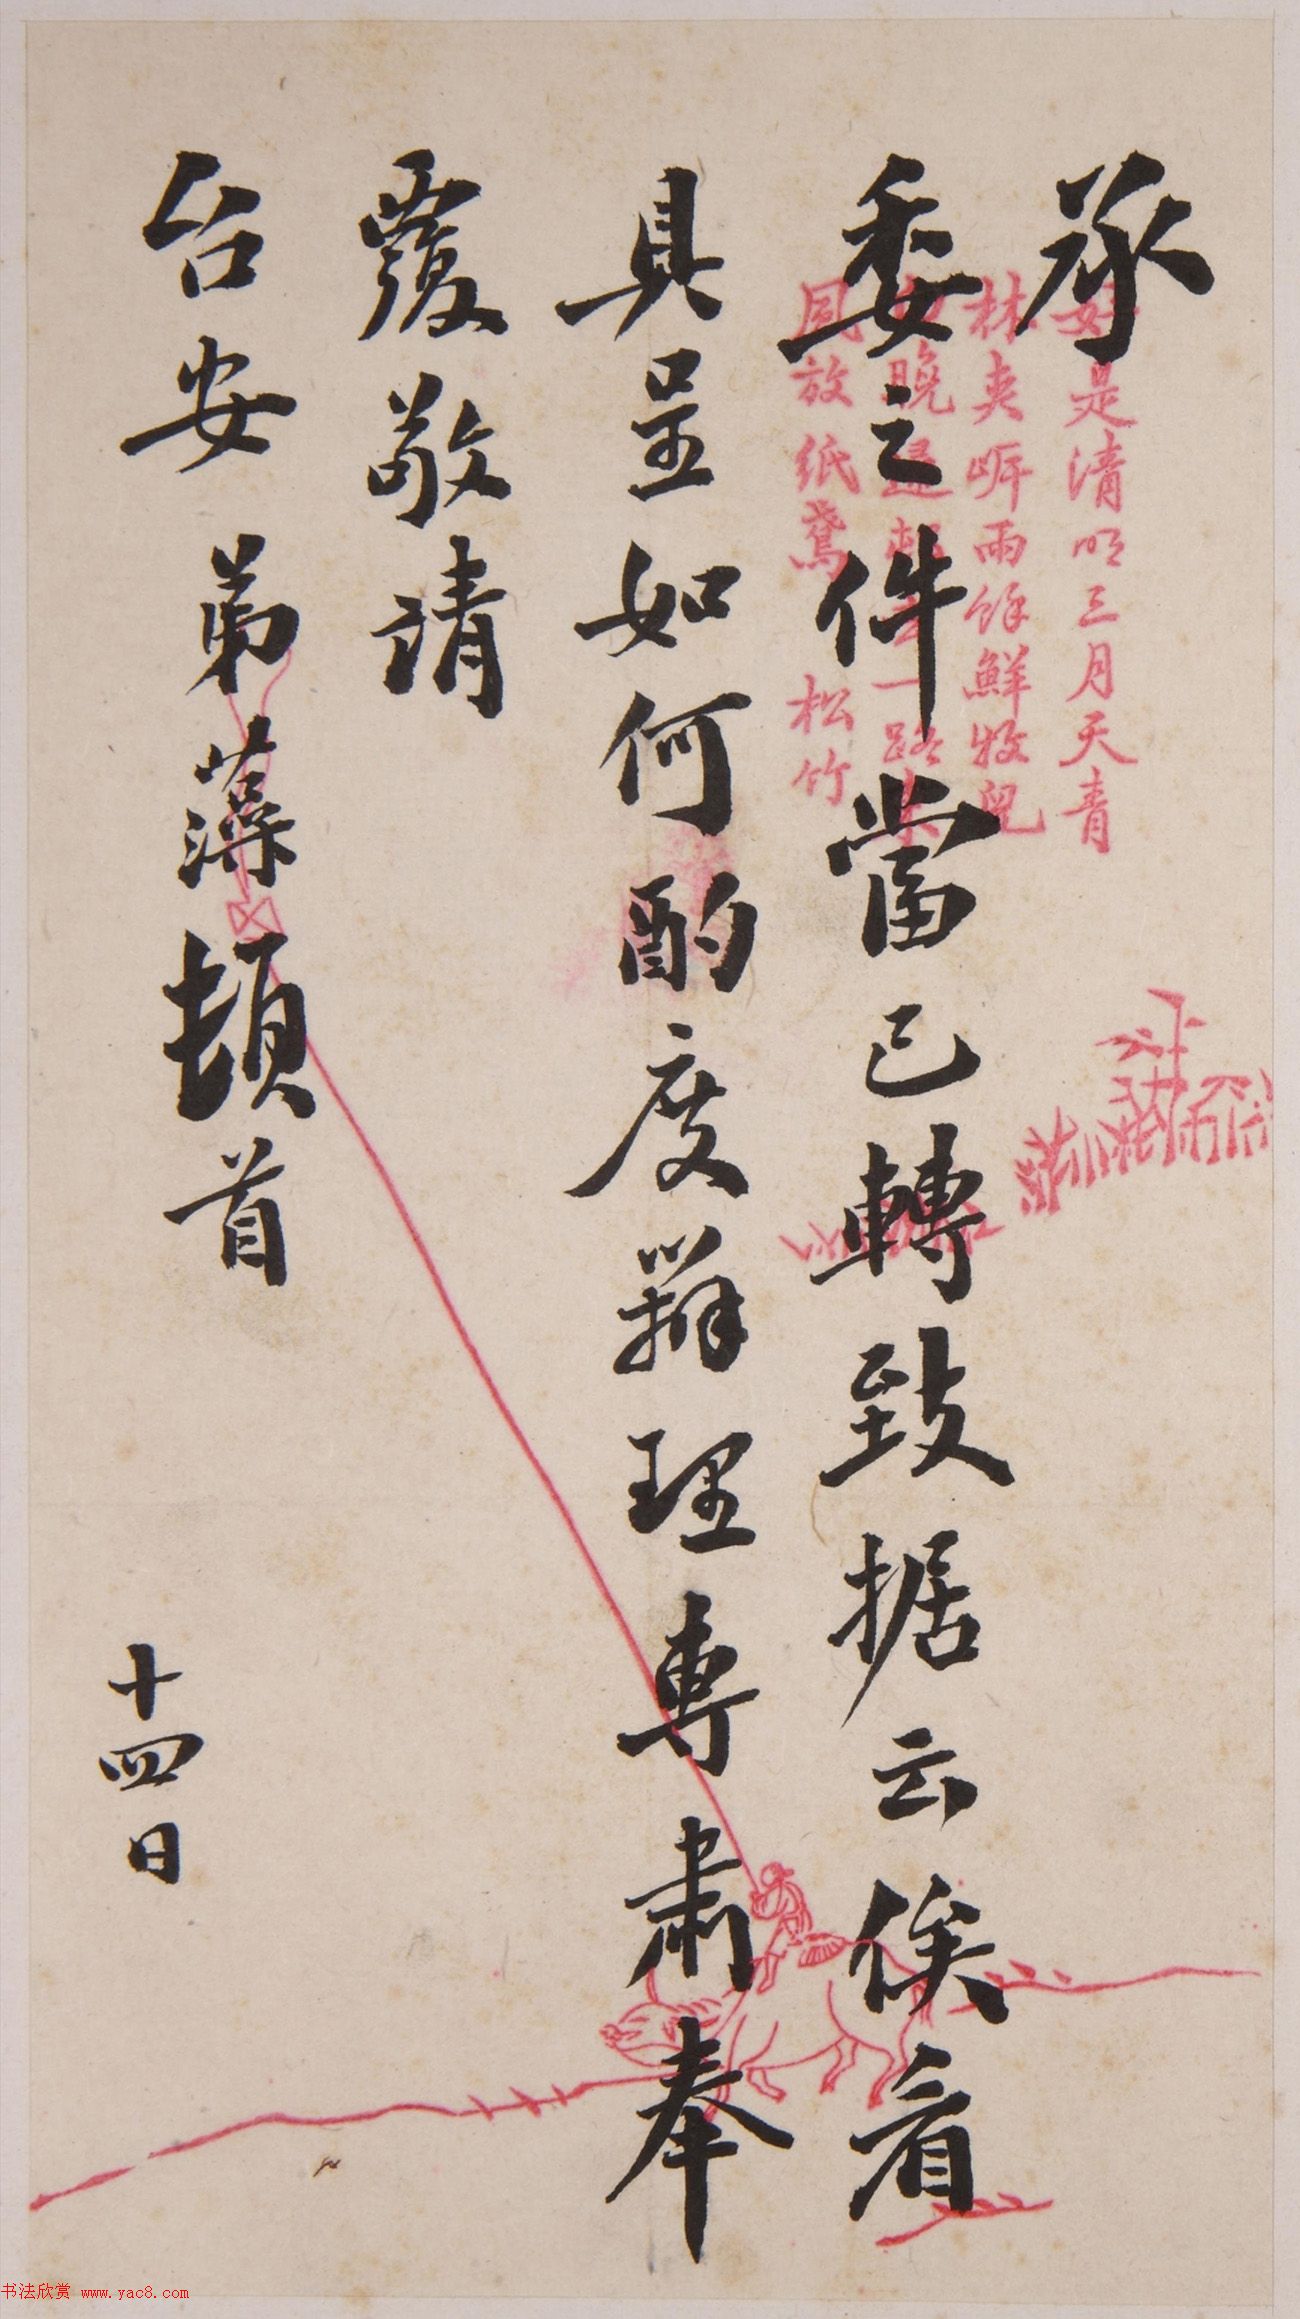 承
委之件當已轉致据云俟看
具呈如何酌度辦理專肅奉
覆敬請
台安 弟藻頓首
十四日
好是清明三月天青
林夾岍雨餘鮮牧兒
晚歸 一路
風放紙鳶 松竹
书法欣赏 www.yac8.com